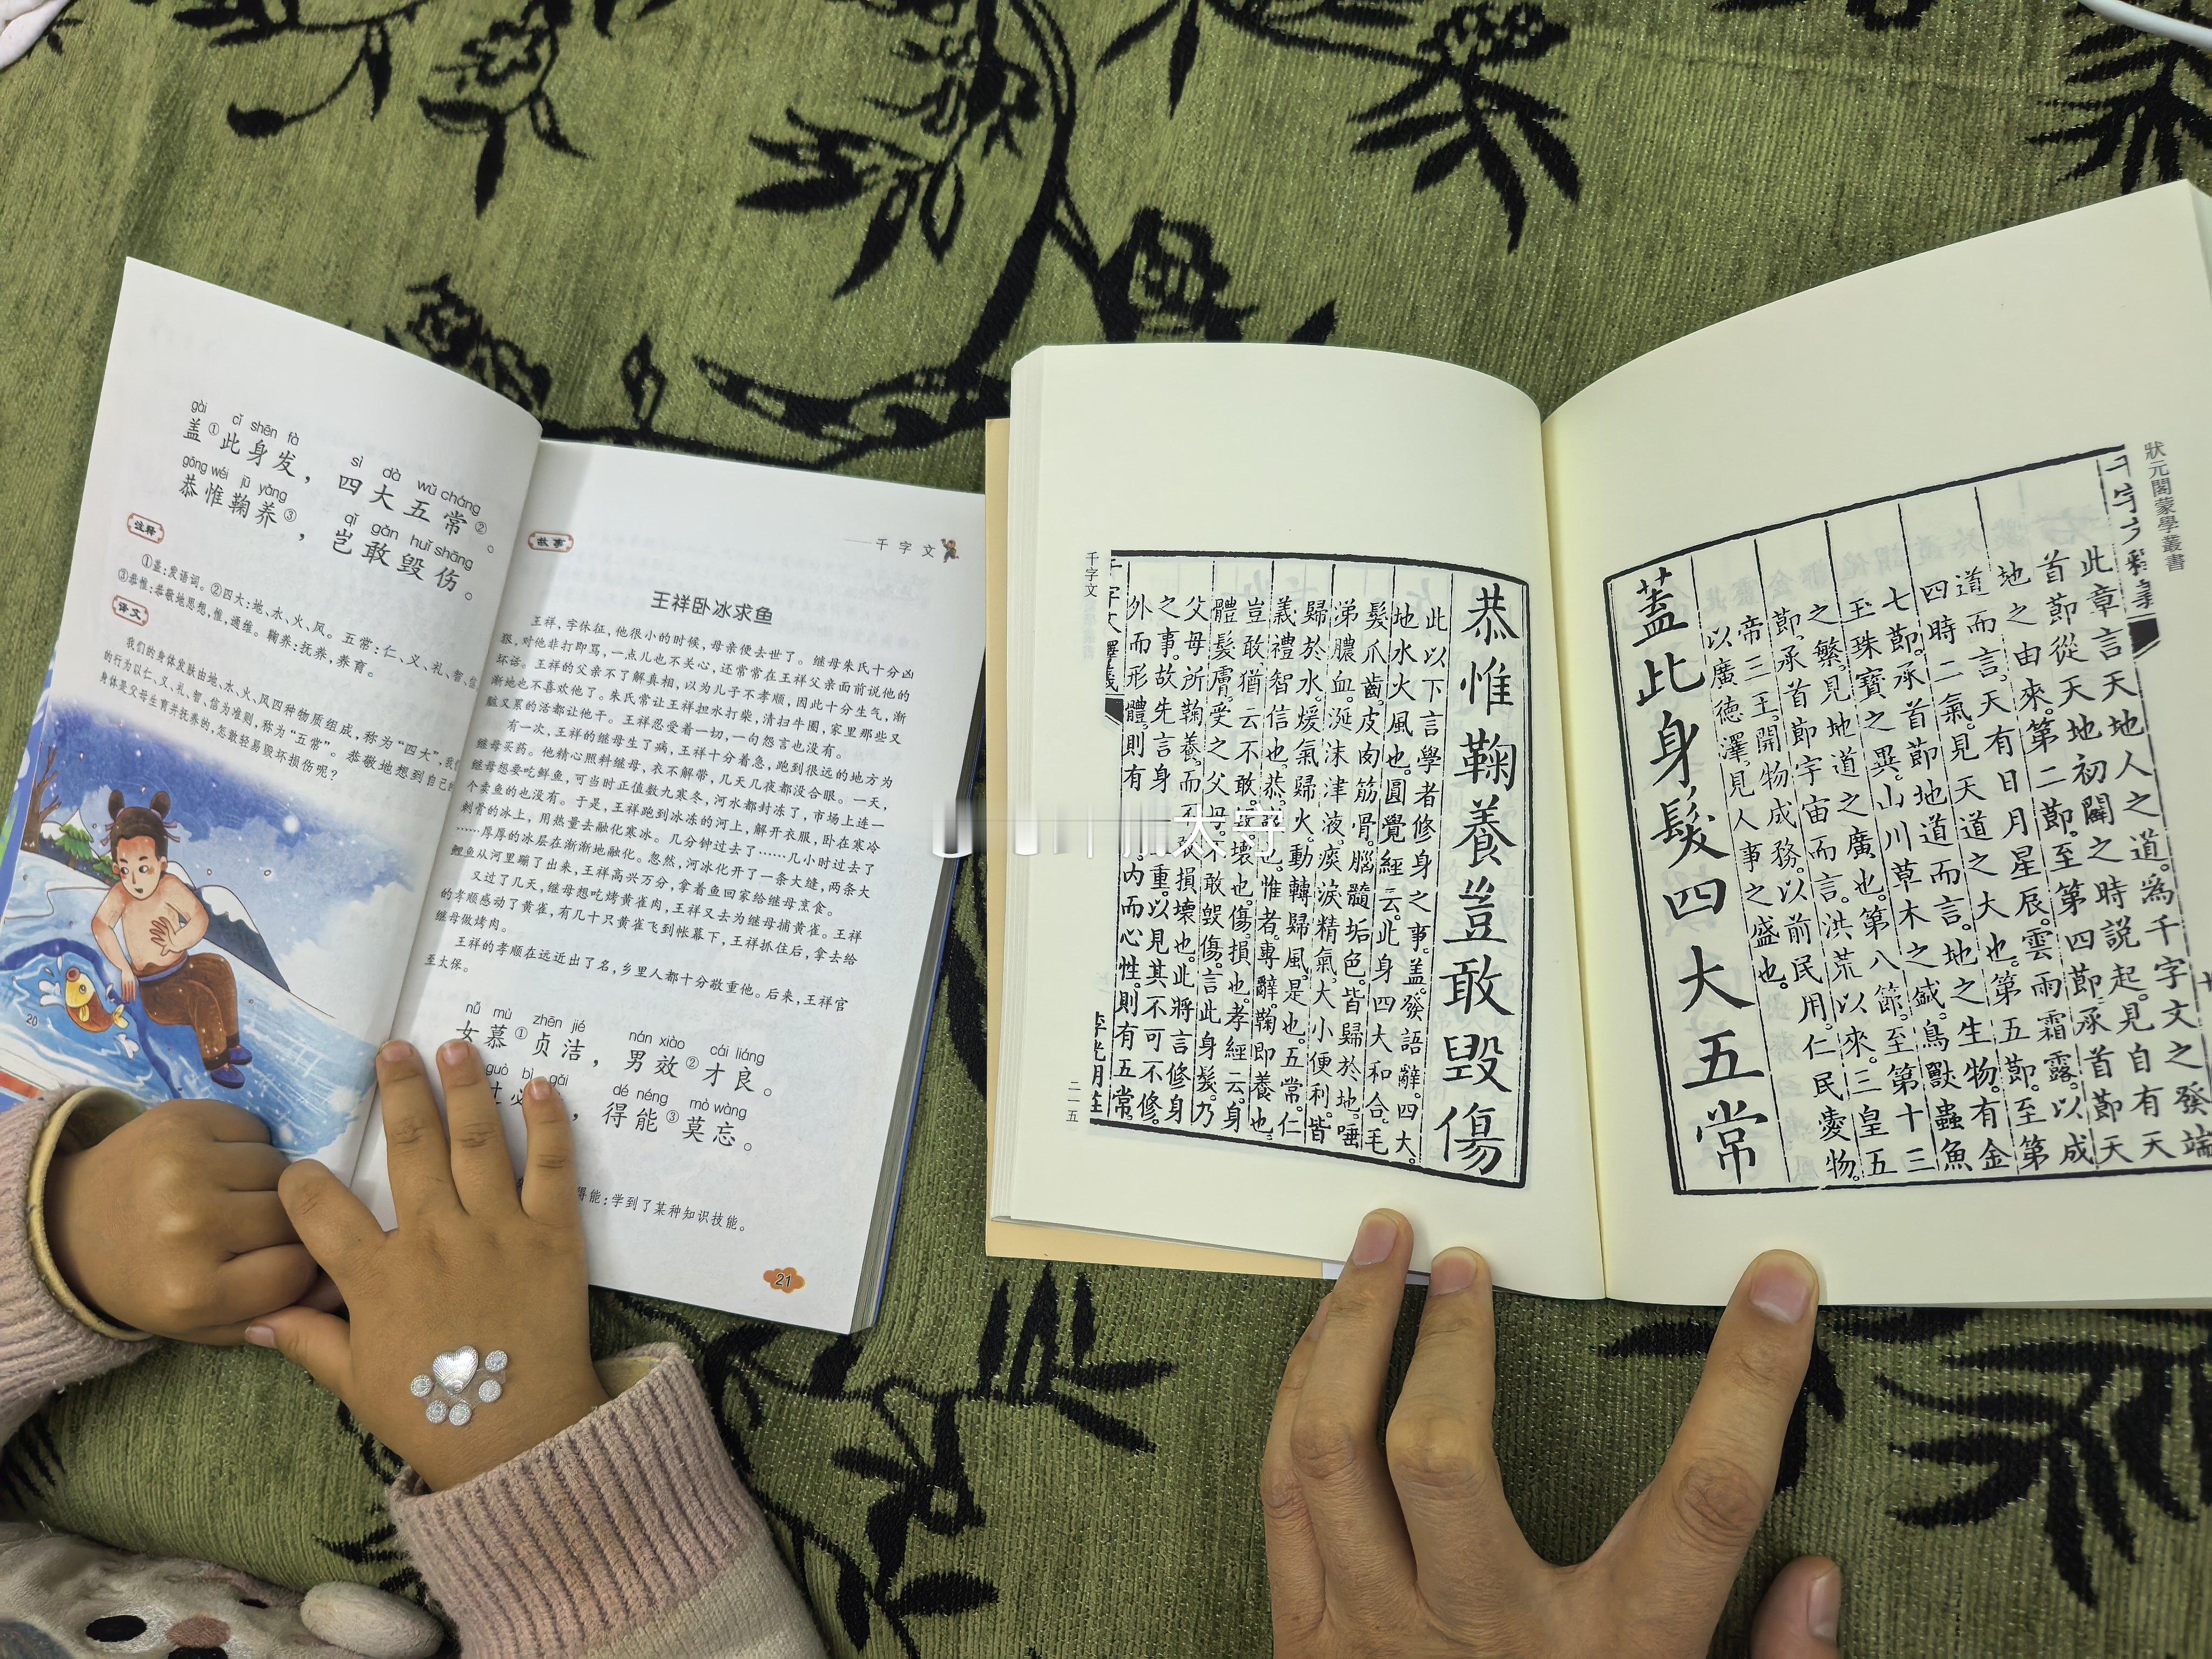 gài cǐ shēn fà sì dà wǔ cháng
盖①此身发，四大五常②。
gōng wéi jū yǎng qǐ gǎn huǐ shāng
恭惟鞠养③，岂敢毁伤。
注释
①盖：发语词。②四大：地、水、火、风。五常：仁、义、礼、智、信
③恭惟：恭敬地思想，惟，通维。鞠养：抚养，养育。
译文
我们的身体发肤由地、水、火、风四种物质组成，称为“四大”，我们
的行为以仁、义、礼、智、信为准则，称为“五常”。恭敬地想到自己的
身体是父母生育并抚养的，怎敢轻易毁坏损伤呢？
20
千字文
故事
王祥卧冰求鱼
王祥，字休征，他很小的时候，母亲便去世了。继母朱氏十分凶
狠，对他非打即骂，一点儿也不关心，还常常在王祥父亲面前说他的
坏话。王祥的父亲不了解真相，以为儿子不孝顺，因此十分生气，渐
渐地也不喜欢他了。朱氏常让王祥担水打柴，清扫牛圈，家里那些又
脏又累的活都让他干。王祥忍受着一切，一句怨言也没有。
有一次，王祥的继母生了病，王祥十分着急，跑到很远的地方为
继母买药。他精心照料继母，衣不解带，几天几夜都没合眼。一天，
继母想要吃鲜鱼，可当时正值数九寒冬，河水都封冻了，市场上连一
个卖鱼的也没有。于是，王祥跑到冰冻的河上，解开衣服，卧在寒冷
刺骨的冰上，用热量去融化寒冰。几分钟过去了……几小时过去了
……厚厚的冰层在渐渐地融化。忽然，河冰化开了一条大缝，两条大
鲤鱼从河里蹦了出来，王祥高兴万分，拿着鱼回家给继母烹食。
又过了几天，继母想吃烤黄雀肉，王祥又去为继母捕黄雀。王祥
的孝顺感动了黄雀，有几十只黄雀飞到帐幕下，王祥抓住后，拿去给
继母做烤肉。
王祥的孝顺在远近出了名，乡里人都十分敬重他。后来，王祥官
至太保。
nǚ mù zhēn jié nán xiào cái liáng
女慕①贞洁，男效②才良。
guò bì gǎi dé néng mò wàng
过必，得能③莫忘。
得能：学到了某种知识技能。
21
狀元閣蒙學叢書
千字文釋義
此章言天地人之道。為千字文之發端
首節從天地初闢之時說起。見自有天
地之由來。第二節。至第四節。承首節天
道而言。天有日月星辰。雲雨霜露。以成
四時二氣。見天道之大也。第五節。至第
七節。承首節地道而言。地之生物。有金
玉珠寶之異。山川草木之盛。鳥獸蟲魚
之繁。見地道之廣也。第八節。至第十三
節。承首節宇宙而言。洪荒以來。三皇五
帝三王。開物成務。以前民用。仁民愛物。
以廣德澤。見人事之盛也。
蓋此身髮四大五常
恭惟鞠養豈敢毀傷
此以下言學者修身之事。蓋。發語辭。四大。
地水火風也。圓覺經云。此身四大和合。毛
髮爪齒。皮肉筋骨。腦髓垢色。皆歸於地。唾
涕膿血。涎沫津液。痰淚精氣。大小便利。皆
歸於水。煖氣歸火。動轉歸風。是也。五常。仁
義禮智信也。恭。也。惟者。專辭。鞠。即養也。
豈敢。猶云不敢。毀。壞也。傷。損也。孝經云。身
體髮膚。受之父母。不敢毀傷。言此身髮。乃
父母所鞠養。而不敢損壞也。此將言修身
之事。故先言身重。以見其不可不修。
外而形體。則有內而心性。則有五常。
千字文
二一五
太守